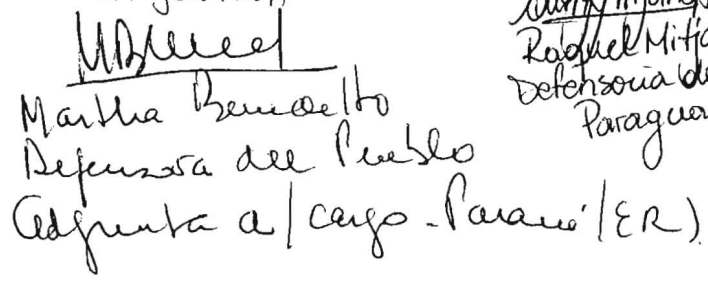 Martha Benedetto
Defensora del Pueblo
Adjunta a/cargo - Paraná (ER)
Raquel Mitja
Defensoría de
Paragua